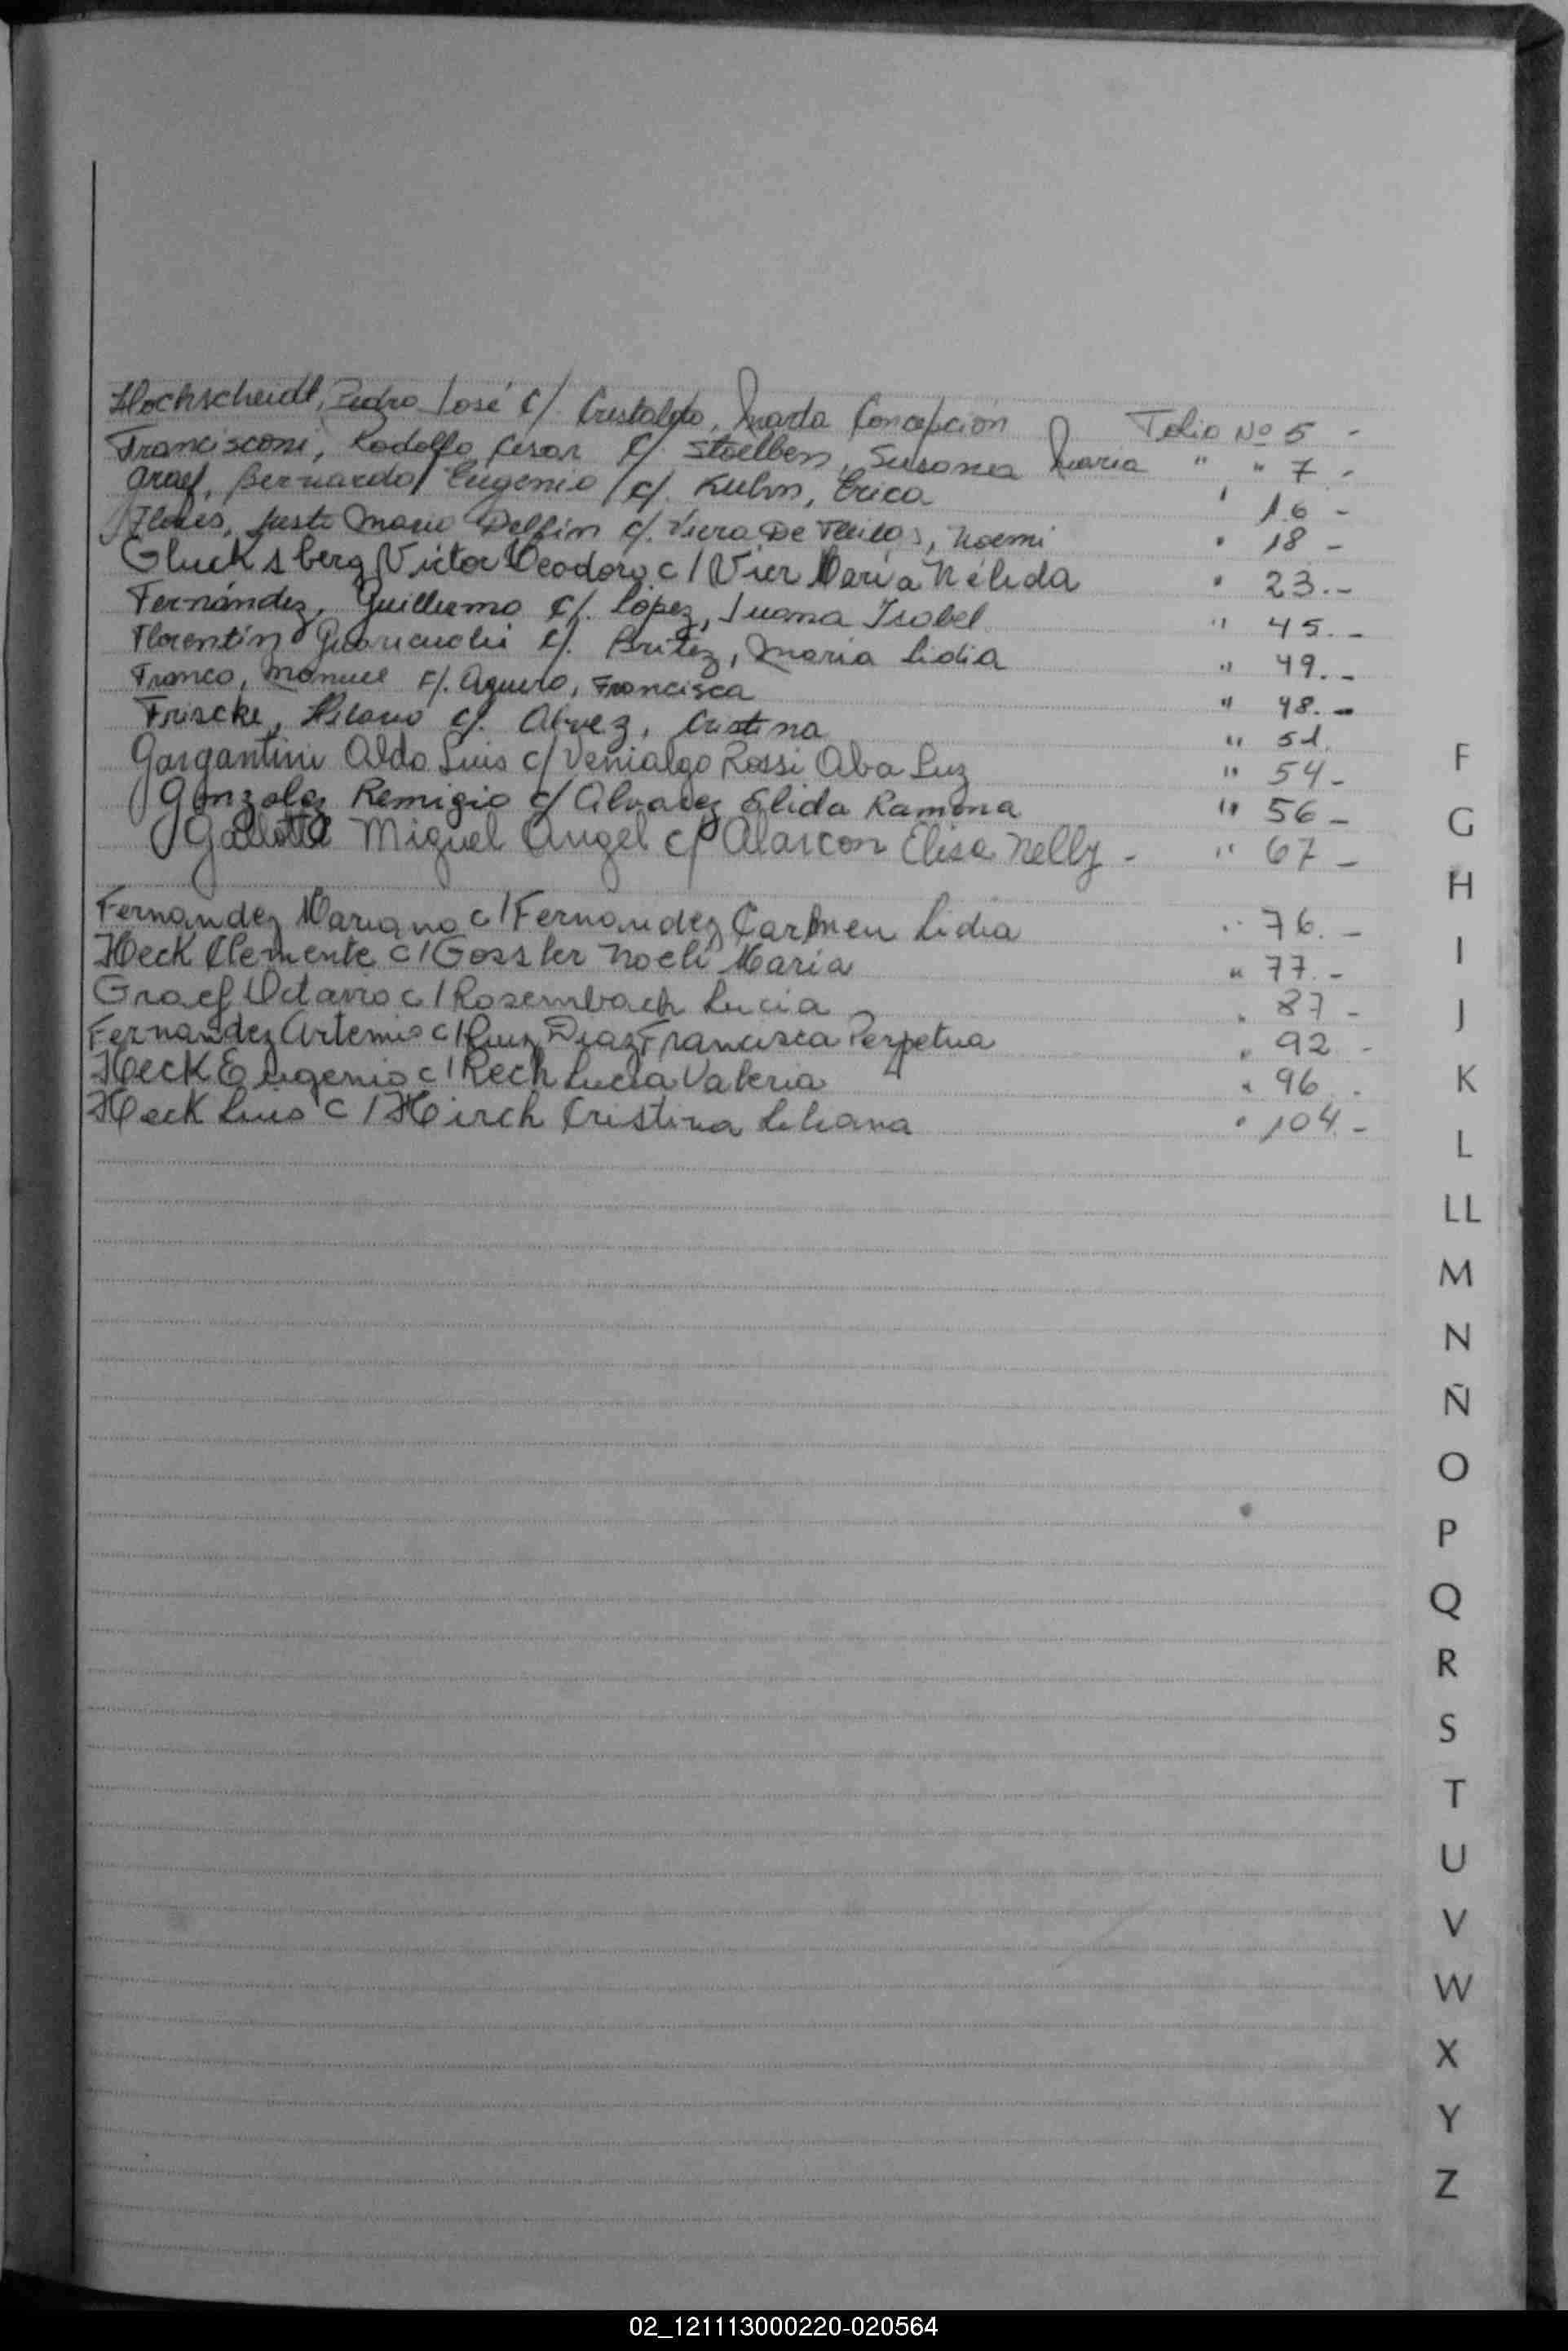 Hochscheidt, Pedro José c/. Cristaldo, Marta Concepción Folio Nº 5 -
Francisconi, Rodolfo Cesar c/. Stoelben, Susana Maria " " 7 -
Graef, Bernardo Eugenio c/. Kuhn, Erica " 16 -
Flores, Justo Mario Delfin c/. Viera De, Noemi " 18 -
Glucksberg Victor Teodoro c/ Vier Maria Nélida " 23.-
Fernández, Guillermo c/. López, Juana Isabel " 45.-
Florentín c/. Britez, Maria Lidia " 49.-
Franco, Manuel c/. Aguero, Francisca " 48.-
Friscke, c/. Alvez, Cristina " 51.
Gargantini Aldo Luis c/ Venialgo Rossi Alba Luz " 54-
Gonzalez Remigio c/ Alvarez Elida Ramona " 56-
Miguel Angel c/ Alarcon Elisa Nelly - " 67-
Fernandez Mariano c/ Fernandez Carmen Lidia " 76.-
Heck Clemente c/ Gossler Noeli Maria " 77.-
Graef Octavio c/ Rosembach Lucia " 87-
Fernandez Artemio c/ Ruiz Diaz Francisca Perpetua " 92-
Heck Eugenio c/ Rech Lucia Valeria " 96.
Heck Luis c/ Hirch Cristina Liliana " 104.-
F
G
H
I
J
K
L
LL
M
N
Ñ
O
P
Q
R
S
T
U
V
W
X
Y
Z
02_121113000220-020564